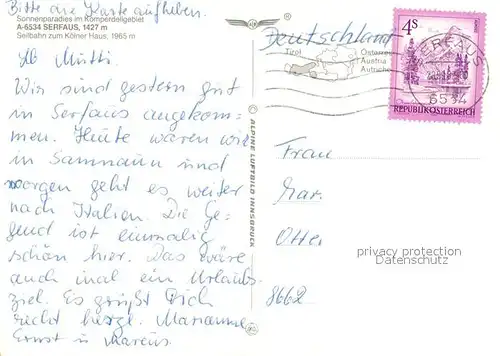 Bitte die Karte aufheben.
Sonnenparadies im Komperdellgebiet
A-6534 SERFAUS, 1427 m
Seilbahn zum Kölner Haus, 1965 m
Lb Mutti.
Wir sind gestern gut
in Serfaus angekom-
men. Heute waren wir
in Samnaun und
morgen geht es weiter
nach Italien. Die Ge-
gend ist einmalig
schön hier. Das wäre
auch mal ein Urlaubs-
ziel. Es grüßt Dich
recht herzl. Marianne
Ernst u Marcus.
®
© ALPINE LUFTBILD INNSBRUCK
Deutschland
Tirol
Österreich
Austria
Autriche
4S
SERFAUS
6534
REPUBLIK ÖSTERREICH
Frau
Mar.
Otte
8662
privacy protection
Datenschutz